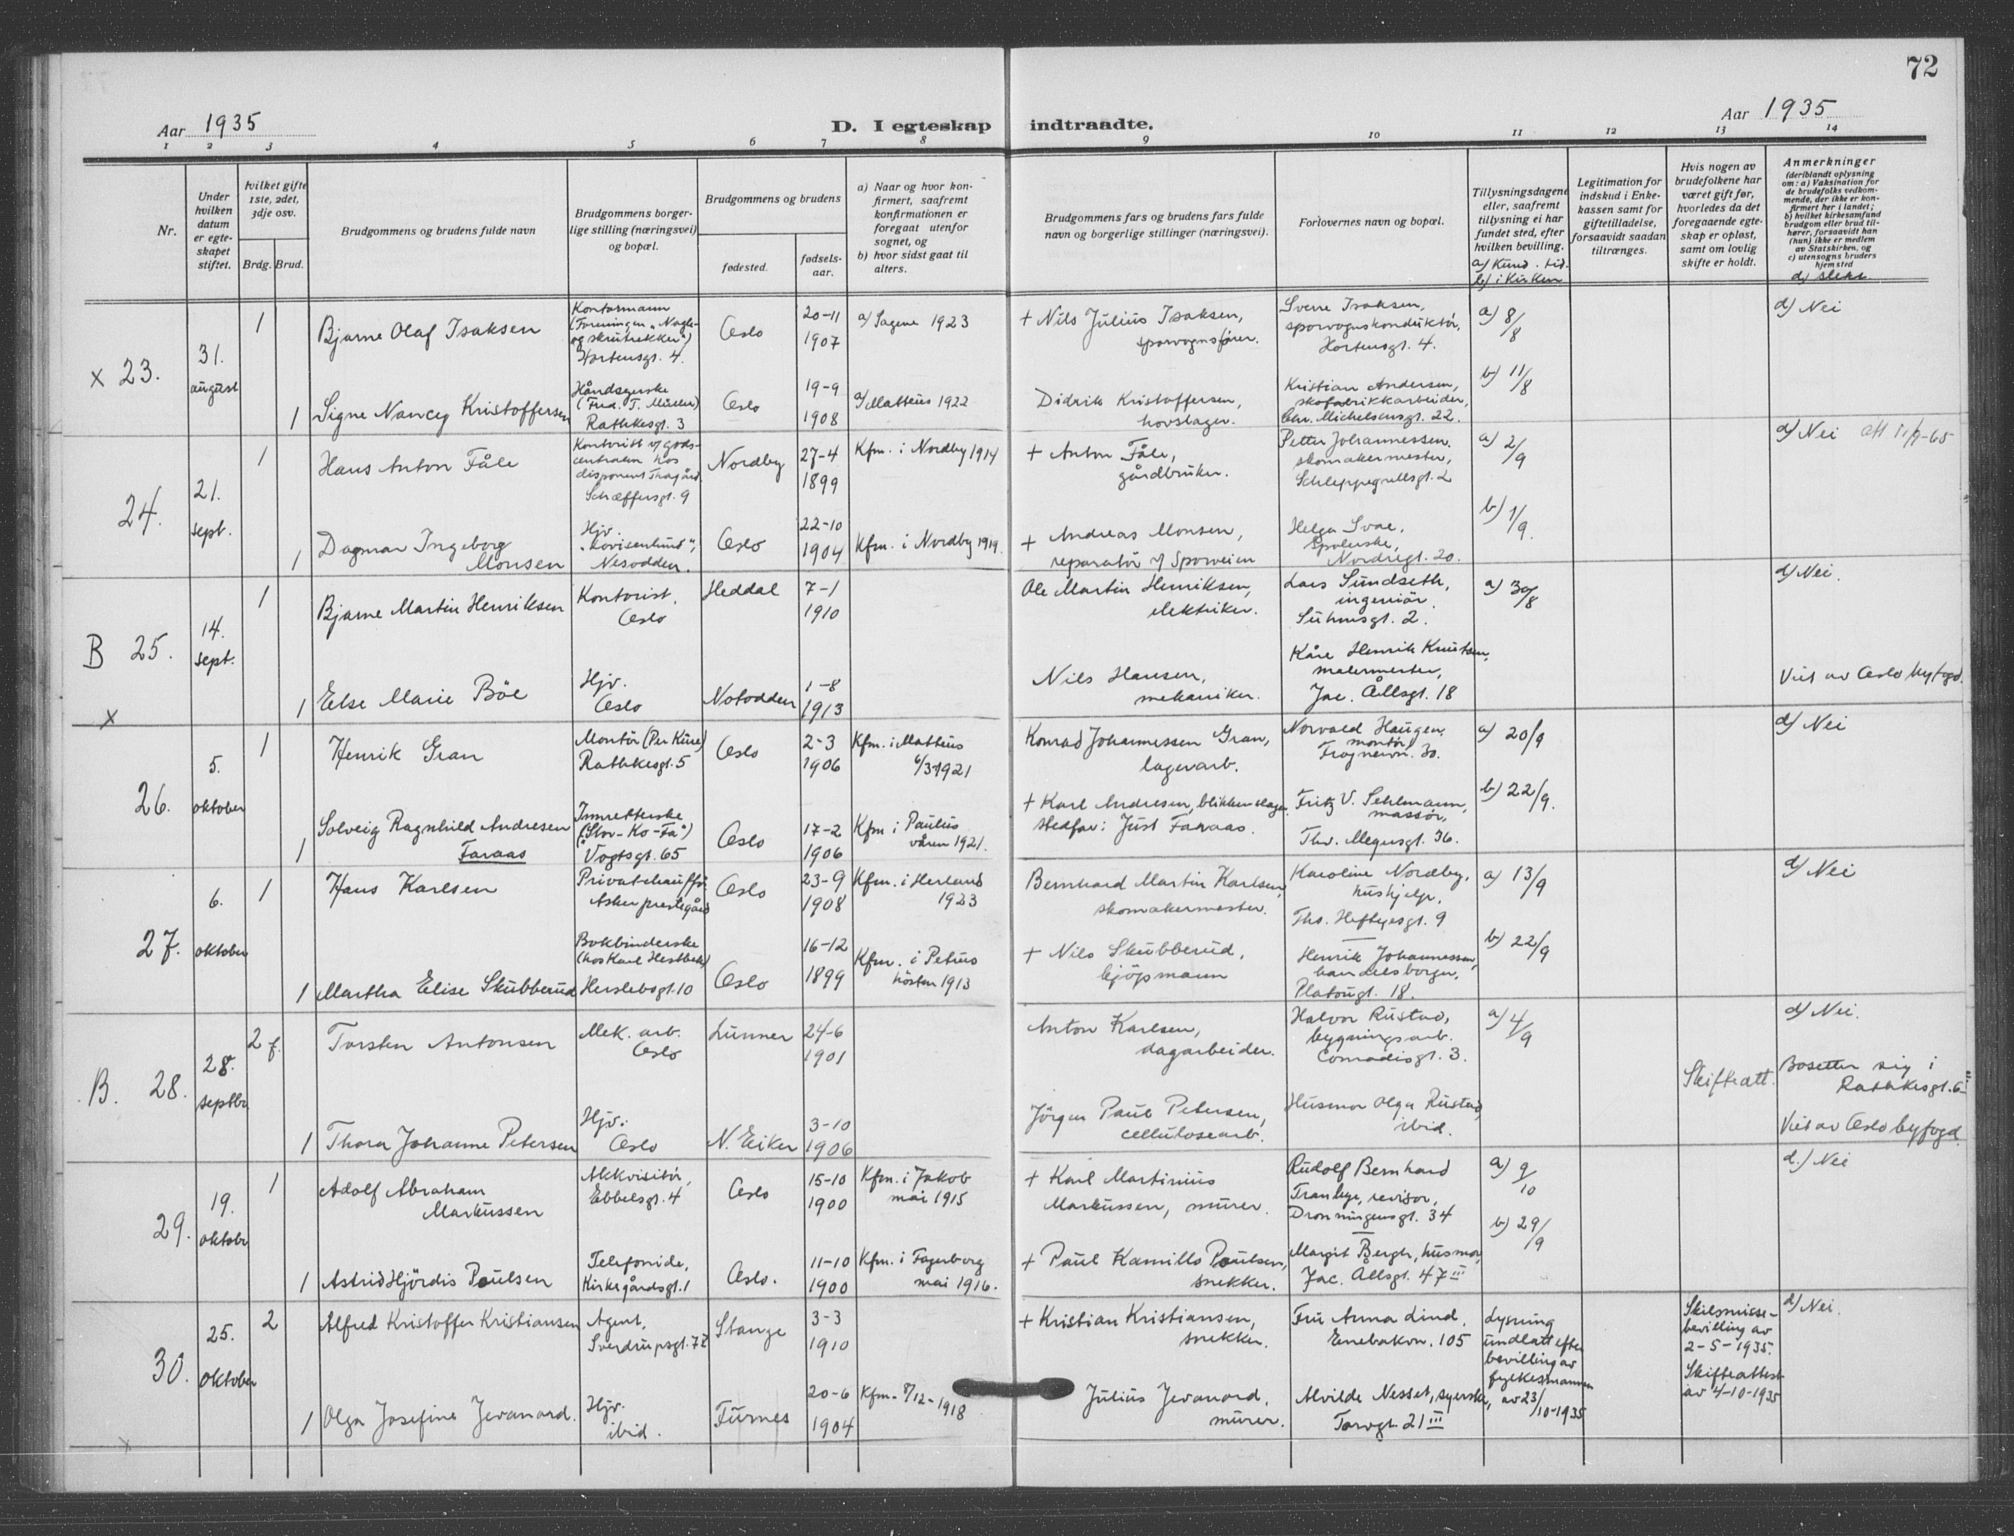 72
Aar 1935
D. I egteskap indtraadte.
Aar 1935
1 2 3 4 5 6 7 8 9 10 11 12 13 14
Nr.
Under
hvilken
datum
er egte-
skapet
stiftet.
hvilket gifte
1ste, 2det,
3dje osv.
Brdg. Brud.
Brudgommens og brudens fulde navn
Brudgommens borger-
lige stilling (næringsvei)
og bopæl.
Brudgommens og brudens
fødested.
fødsels-
aar.
a) Naar og hvor kon-
firmert, saafremt
konfirmationen er
foregaat utenfor
sognet, og
b) hvor sidst gaat til
alters.
Brudgommens fars og brudens fars fulde
navn og borgerlige stillinger (næringsvei).
Forlovernes navn og bopæl.
Tillysningsdagene
eller, saafremt
tillysning ei har
fundet sted, efter
hvilken bevilling.
a) Kund. tid.
b) i Kirken
Legitimation for
indskud i Enke-
kassen samt for
giftetilladelse,
forsaavidt saadan
tiltrænges.
Hvis nogen av
brudefolkene har
været gift før,
hvorledes da det
foregaaende egte-
skap er opløst,
samt om lovlig
skifte er holdt.
Anmerkninger
(deriblandt oplysning
om: a) Vaksination for
de brudefolks vedkom-
mende, der ikke er kon-
firmert her i landet;
b) hvilket kirkesamfund
brudgom eller brud til-
hører, forsaavidt han
(hun) ikke er medlem
av Statskirken, og
c) utensogns bruders
hjemsted
d) slekt
x 23.
31.
august
1
Bjarne Olaf Isaksen
Kontormann
(Foreningen "Nagle-
og skruetrekker")
Hortensgt. 4.
Oslo
20-11
1907
a) Sagene 1923
+ Nils Julius Isaksen,
sporvognsfører.
Sverre Isaksen,
sporvognskonduktør,
Hortensgt. 4.
a) 8/8
d) Nei
1
Signe Nancy Kristoffersen
Håndsyerske
(Fred. T. Müller)
Rathkesgt. 3
Oslo
19-9
1908
a) Matteus 1922
Didrik Kristoffersen,
hovslager.
Kristian Andersen,
skofabrikkarbeider,
Chr. Michelsensgt. 22.
b) 11/8
24.
21.
sept.
1
Hans Anton Fåle
Kontorist v/ Gods-
centralen hos
disponent
Schæffersgt. 9
Nordby
27-4
1899
Kfm. i Nordby 1914
+ Anton Fåle,
gårdbruker.
Petter Johannessen.
skomakermester,
Schleppegrellsgt. 2
a) 2/9
d) Nei att 11/9-65
1
Dagmar Ingeborg
Monsen
Hjv.
"Lovisenlund",
Nesodden.
Oslo
22-10
1904
Kfm. i Nordby 1919.
+ Andreas Monsen,
reparatör v/ Sporveien
Helga Svae,
Spolerske,
Nordregt. 20.
b) 1/9.
B 25.
14.
sept.
1
Bjarne Martin Henriksen
Kontorist,
Oslo
Heddal
7-1
1910
Ole Martin Henriksen,
elektriker.
Lars Sundseth,
ingeniör.
Suhmsgt. 2.
a) 30/8
d) Nei.
x
1
Else Marie Böe
Hjv.
Oslo
Notodden
1-8
1913
Nils Hansen,
mekaniker.
Kåre Henrik Knutsen,
malermester,
Jac. Ållsgt. 18
Viet av Oslo byfogd.
26.
5.
oktober
1
Henrik Gran
Montör (Per Kure)
Rathkesgt. 5
Oslo
2-3
1906
Kfm. i Matteus
6/3-1921
Konrad Johannessen Gran,
lagerarb.
Norvald Haugen,
montör,
Frognervn. 30.
a) 20/9
d) Nei
1
Solveig Ragnhild Andresen
Faraas
("Stor-Ko-Fa")
Vogtsgt. 65
Oslo
17-2
1906
Kfm i Paulus
våren 1921.
+ Karl Andresen, blikkenslager
stedfar: Just Faraas.
Fritz V. Sehlmann,
massör,
Thv. Meyersgt. 36.
b) 22/9.
27.
6.
oktober
1
Hans Karlsen
Privatchauffør
Asker prestegård
Oslo
23-9
1908
Kfm. i Herland
1923
Bernhard Martin Karlsen,
skomakermester.
Karoline Nordby,
hushjelp,
Ths. Heftyesgt. 9
a) 13/9
d) Nei
1
Martha Elise Skubberud
Bokbinderske
(hos Karl Hestbek)
Herslebsgt. 10
Oslo
16-12
1899
Kfm. i Petrus
hösten 1913
+ Nils Skubberud,
kjöpmann
Henrik Johannessen,
handelsborger,
Platousgt. 18.
b) 22/9
B. 28.
28.
septbr
2 f.
Torsten Antonsen
Mek. arb.
Oslo
Lunner
24-6
1901
Anton Karlsen,
dagarbeider.
Halvor Rustad,
bygningsarb.
Conradisgt. 3.
a) 4/9
Skifteatt.
d) Nei.
Bosetter sig i
Rathkesgt. 6 II
1
Thora Johanne Petersen
Hjv.
Oslo
N. Eiker
3-10
1906
Jörgen Paul Petersen,
cellulosearb.
Husmor Olga Rustad
ibid.
Viet av Oslo byfogd.
29.
19.
oktobr
1
Adolf Abraham
Markussen
Akkvisitör,
Ebbelsgt. 4
Oslo
15-10
1900
Kfm. i Jakob
mai 1915
+ Karl Martinius
Markussen, murer.
Rudolf Bernhard
Tranbye, revisor,
Dronningensgt. 34
a) 9/10
d.) Nei
1
Astrid Hjördis Poulsen
Telefonide,
Kirkegårdsgt. 1
Oslo.
11-10
1900
Kfm. i Fagerborg
mai 1916.
+ Paul Kamillo Poulsen,
snekker.
Margit Bergh, husmor,
Jac. Ållsgt. 47 III
b) 29/9
30.
25.
oktober
2
Alfred Kristoffer Kristiansen
Agent,
Sverdrupsgt. 7 I
Stange
3-3
1910
+ Kristian Kristiansen,
snekker.
Fru Anna Lind.
Enebakvn. 105
Lysning
undlatt efter
bevilling av
fylkesmannen
av 23/10-1935
Skilsmisse-
bevilling av
2-5-1935.
Skifteattest
av 4-10-1935
d) Nei.
x
1
Olga Josefine Jevanord.
Hjv.
ibid.
Furnes
20-6
1904
Kfm. 8/12-1918
Julius Jevanord,
murer.
Alvilde Nesset, syerske,
Torvgt. 21 III